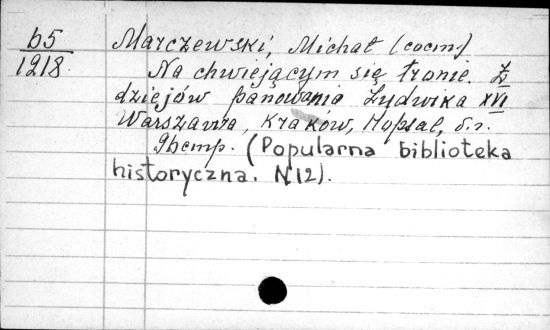 b5
1218.
Marczewski, Michał (cocm.)
Na chwiejącym się tronie. Z
dziejów panowania Ludwika XVI
Warszawa, Kraków, Hopsal, б.г.
9hemp. (Popularna biblioteka
historyczna. N 12).